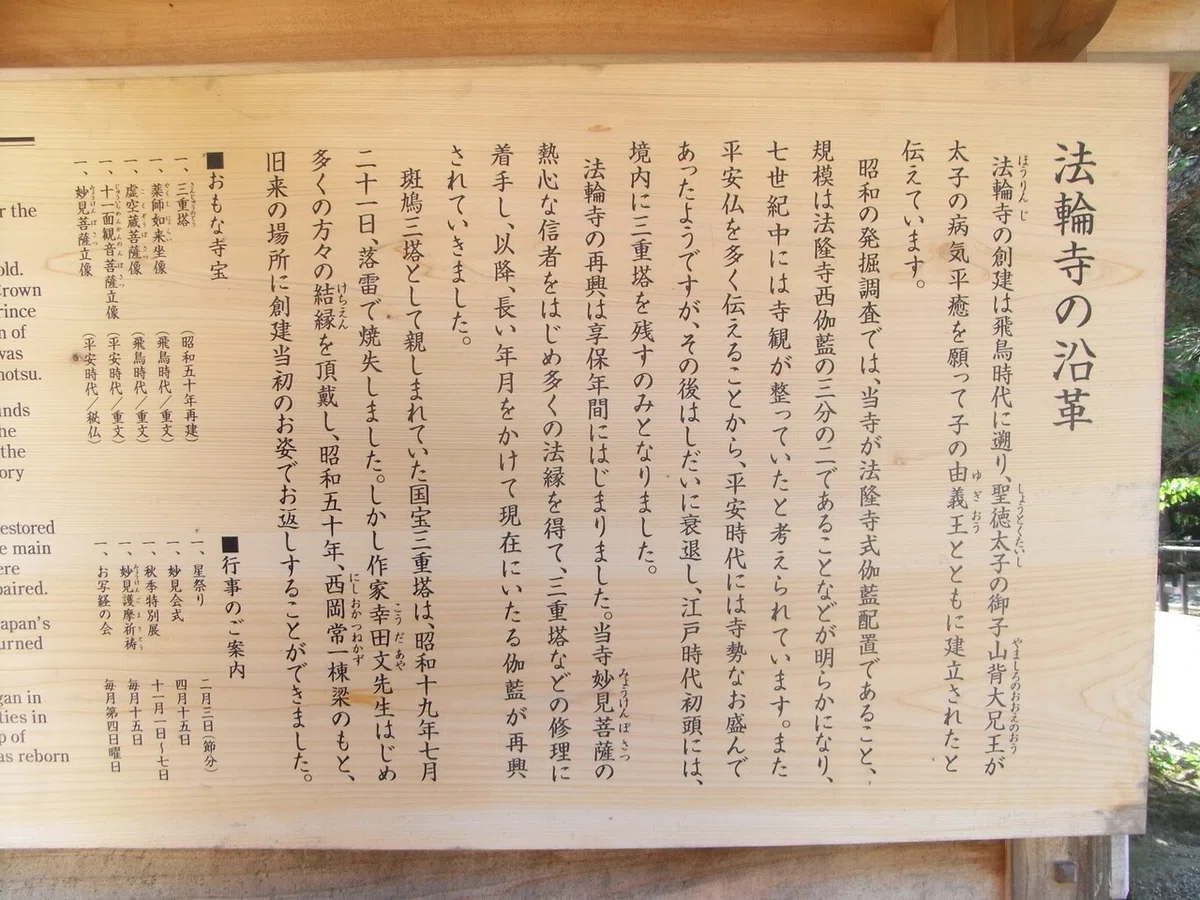 法輪寺の沿革
法輪寺の創建は飛鳥時代に遡り、聖徳太子の御子山背大兄王が
ほうりんじ
しょうとくたいし
やましろのおおえのおう
太子の病気平癒を願って子の由義王とともに建立されたと
ゆぎおう
伝えています。
昭和の発掘調査では、当寺が法隆寺式伽藍配置であること、
規模は法隆寺西伽藍の三分の二であることなどが明らかになり、
七世紀中には寺観が整っていたと考えられています。また
平安仏を多く伝えることから、平安時代には寺勢なお盛んで
あったようですが、その後はしだいに衰退し、江戸時代初頭には、
境内に三重塔を残すのみとなりました。
法輪寺の再興は享保年間にはじまりました。当寺妙見菩薩の
みょうけんぼさつ
熱心な信者をはじめ多くの法縁を得て、三重塔などの修理に
着手し、以降、長い年月をかけて現在にいたる伽藍が再興
されていきました。
斑鳩三塔として親しまれていた国宝三重塔は、昭和十九年七月
二十一日、落雷で焼失しました。しかし作家幸田文先生はじめ
こうだあや
多くの方々の結縁を頂戴し、昭和五十年、西岡常一棟梁のもと、
けちえん
にしおかつねかず
旧来の場所に創建当初のお姿でお返しすることができました。
■おもな寺宝
一、三重塔 (昭和五十年再建)
さんじゅうのとう
一、薬師如来坐像 (飛鳥時代/重文)
やくしにょらい
一、虚空蔵菩薩像 (飛鳥時代/重文)
こくぞうぼさつ
一、十一面観音菩薩立像 (平安時代/重文)
じゅういちめんかんのんぼさつ
一、妙見菩薩立像 (平安時代/秘仏)
みょうけんぼさつ
■行事のご案内
一、星祭り 二月三日(節分)
一、妙見会式 四月十五日
一、秋季特別展 十一月一日~七日
一、妙見護摩祈祷 毎月十五日
みょうけんごまきとう
一、お写経の会 毎月第四日曜日
r the
old.
Crown
rince
n of
was
notsu.
unds
he
the
ory
estored
e main
ere
paired.
apan's
urned
gan in
ties in
p of
as reborn